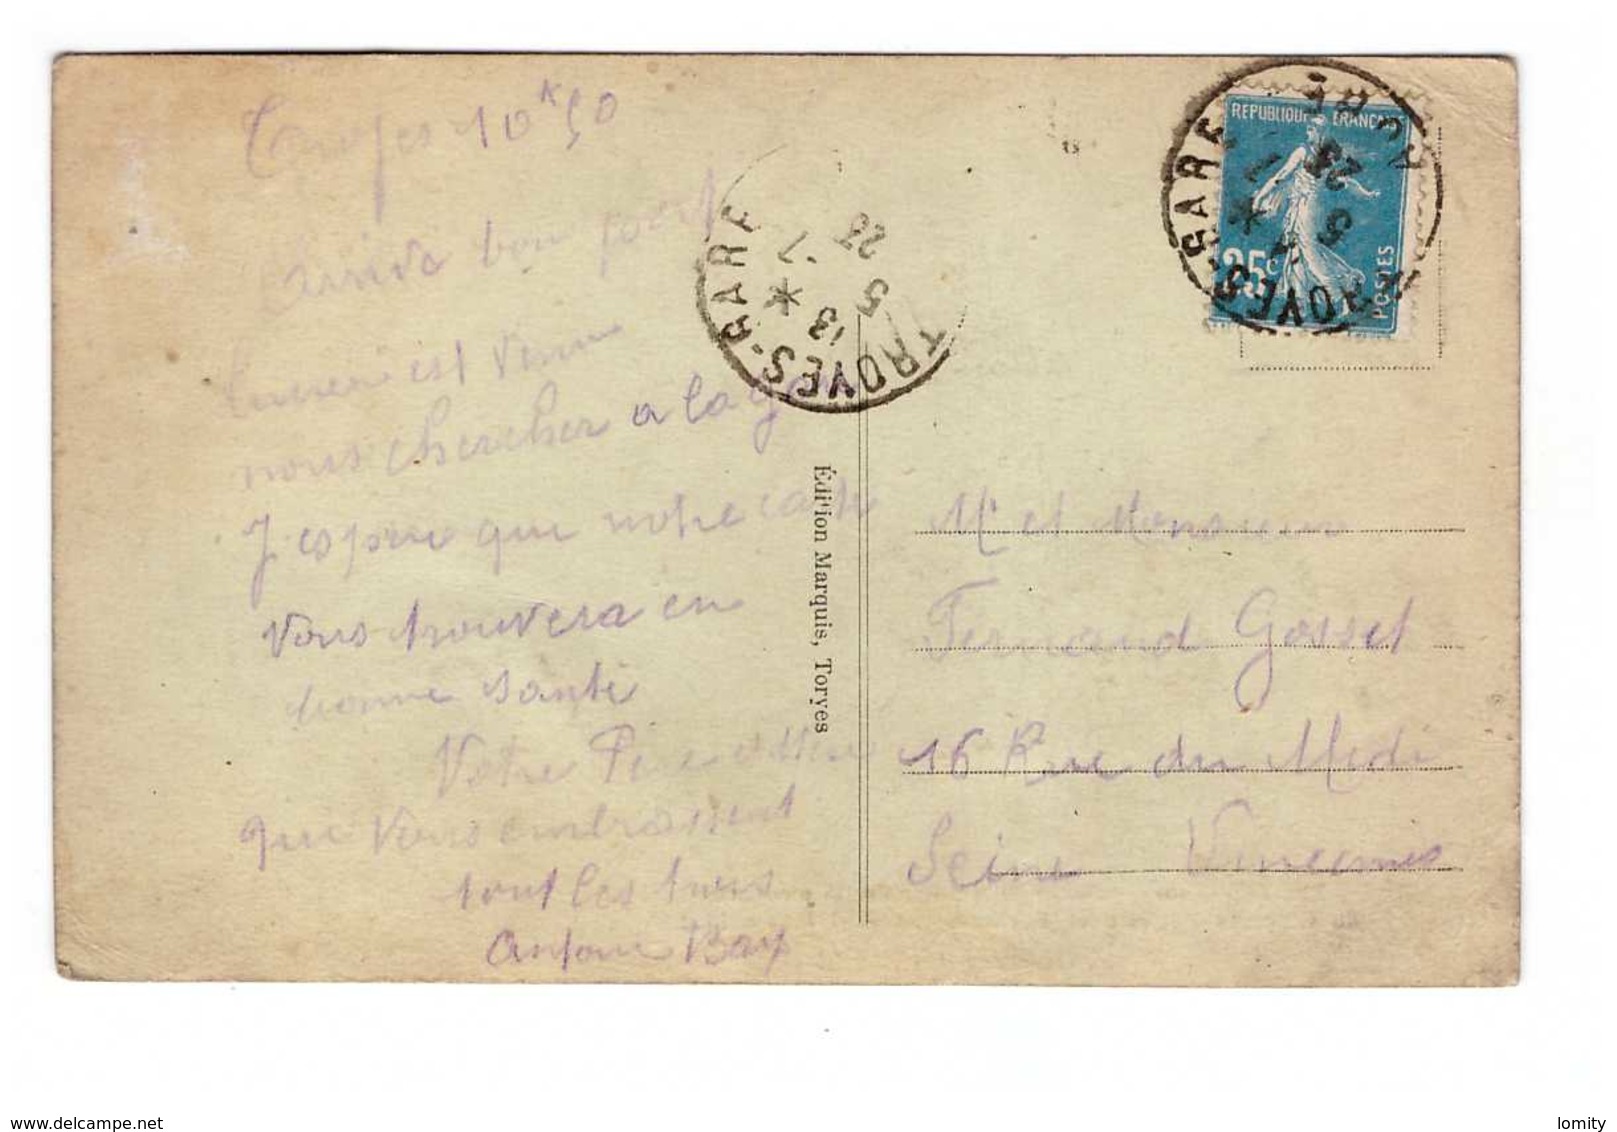 Troyes 10 h 50
arrivé bon port
est venu
nous chercher a la gare
J espere que notre carte
Vous trouvera en
bonne santé
Votre Pere et Mere
qui Vous embrassent
tout les trois
TROYES-GARE
13 * 7
5
23
Édition Marquis, Toryes
REPUBLIQUE FRANÇAISE
25c
POSTES
TROYES-GARE
* 7
5
23
AUBE
Me et Monsieur
Fernand Gosset
16 Rue du Midi
Seine Vincennes
www.delcampe.net
lomity